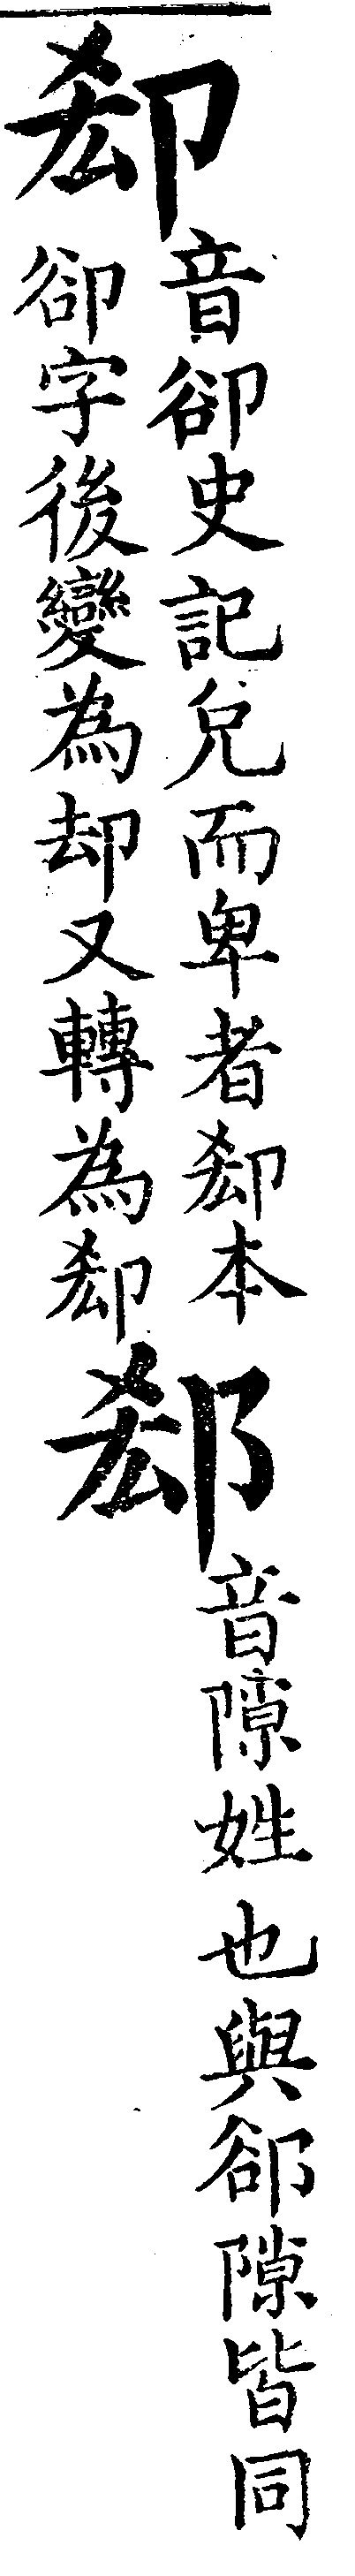 㕁
音卻史記兌而卑者㕁本
卻字後變為却又轉為㕁
郄
音隙姓也與郤隙皆同